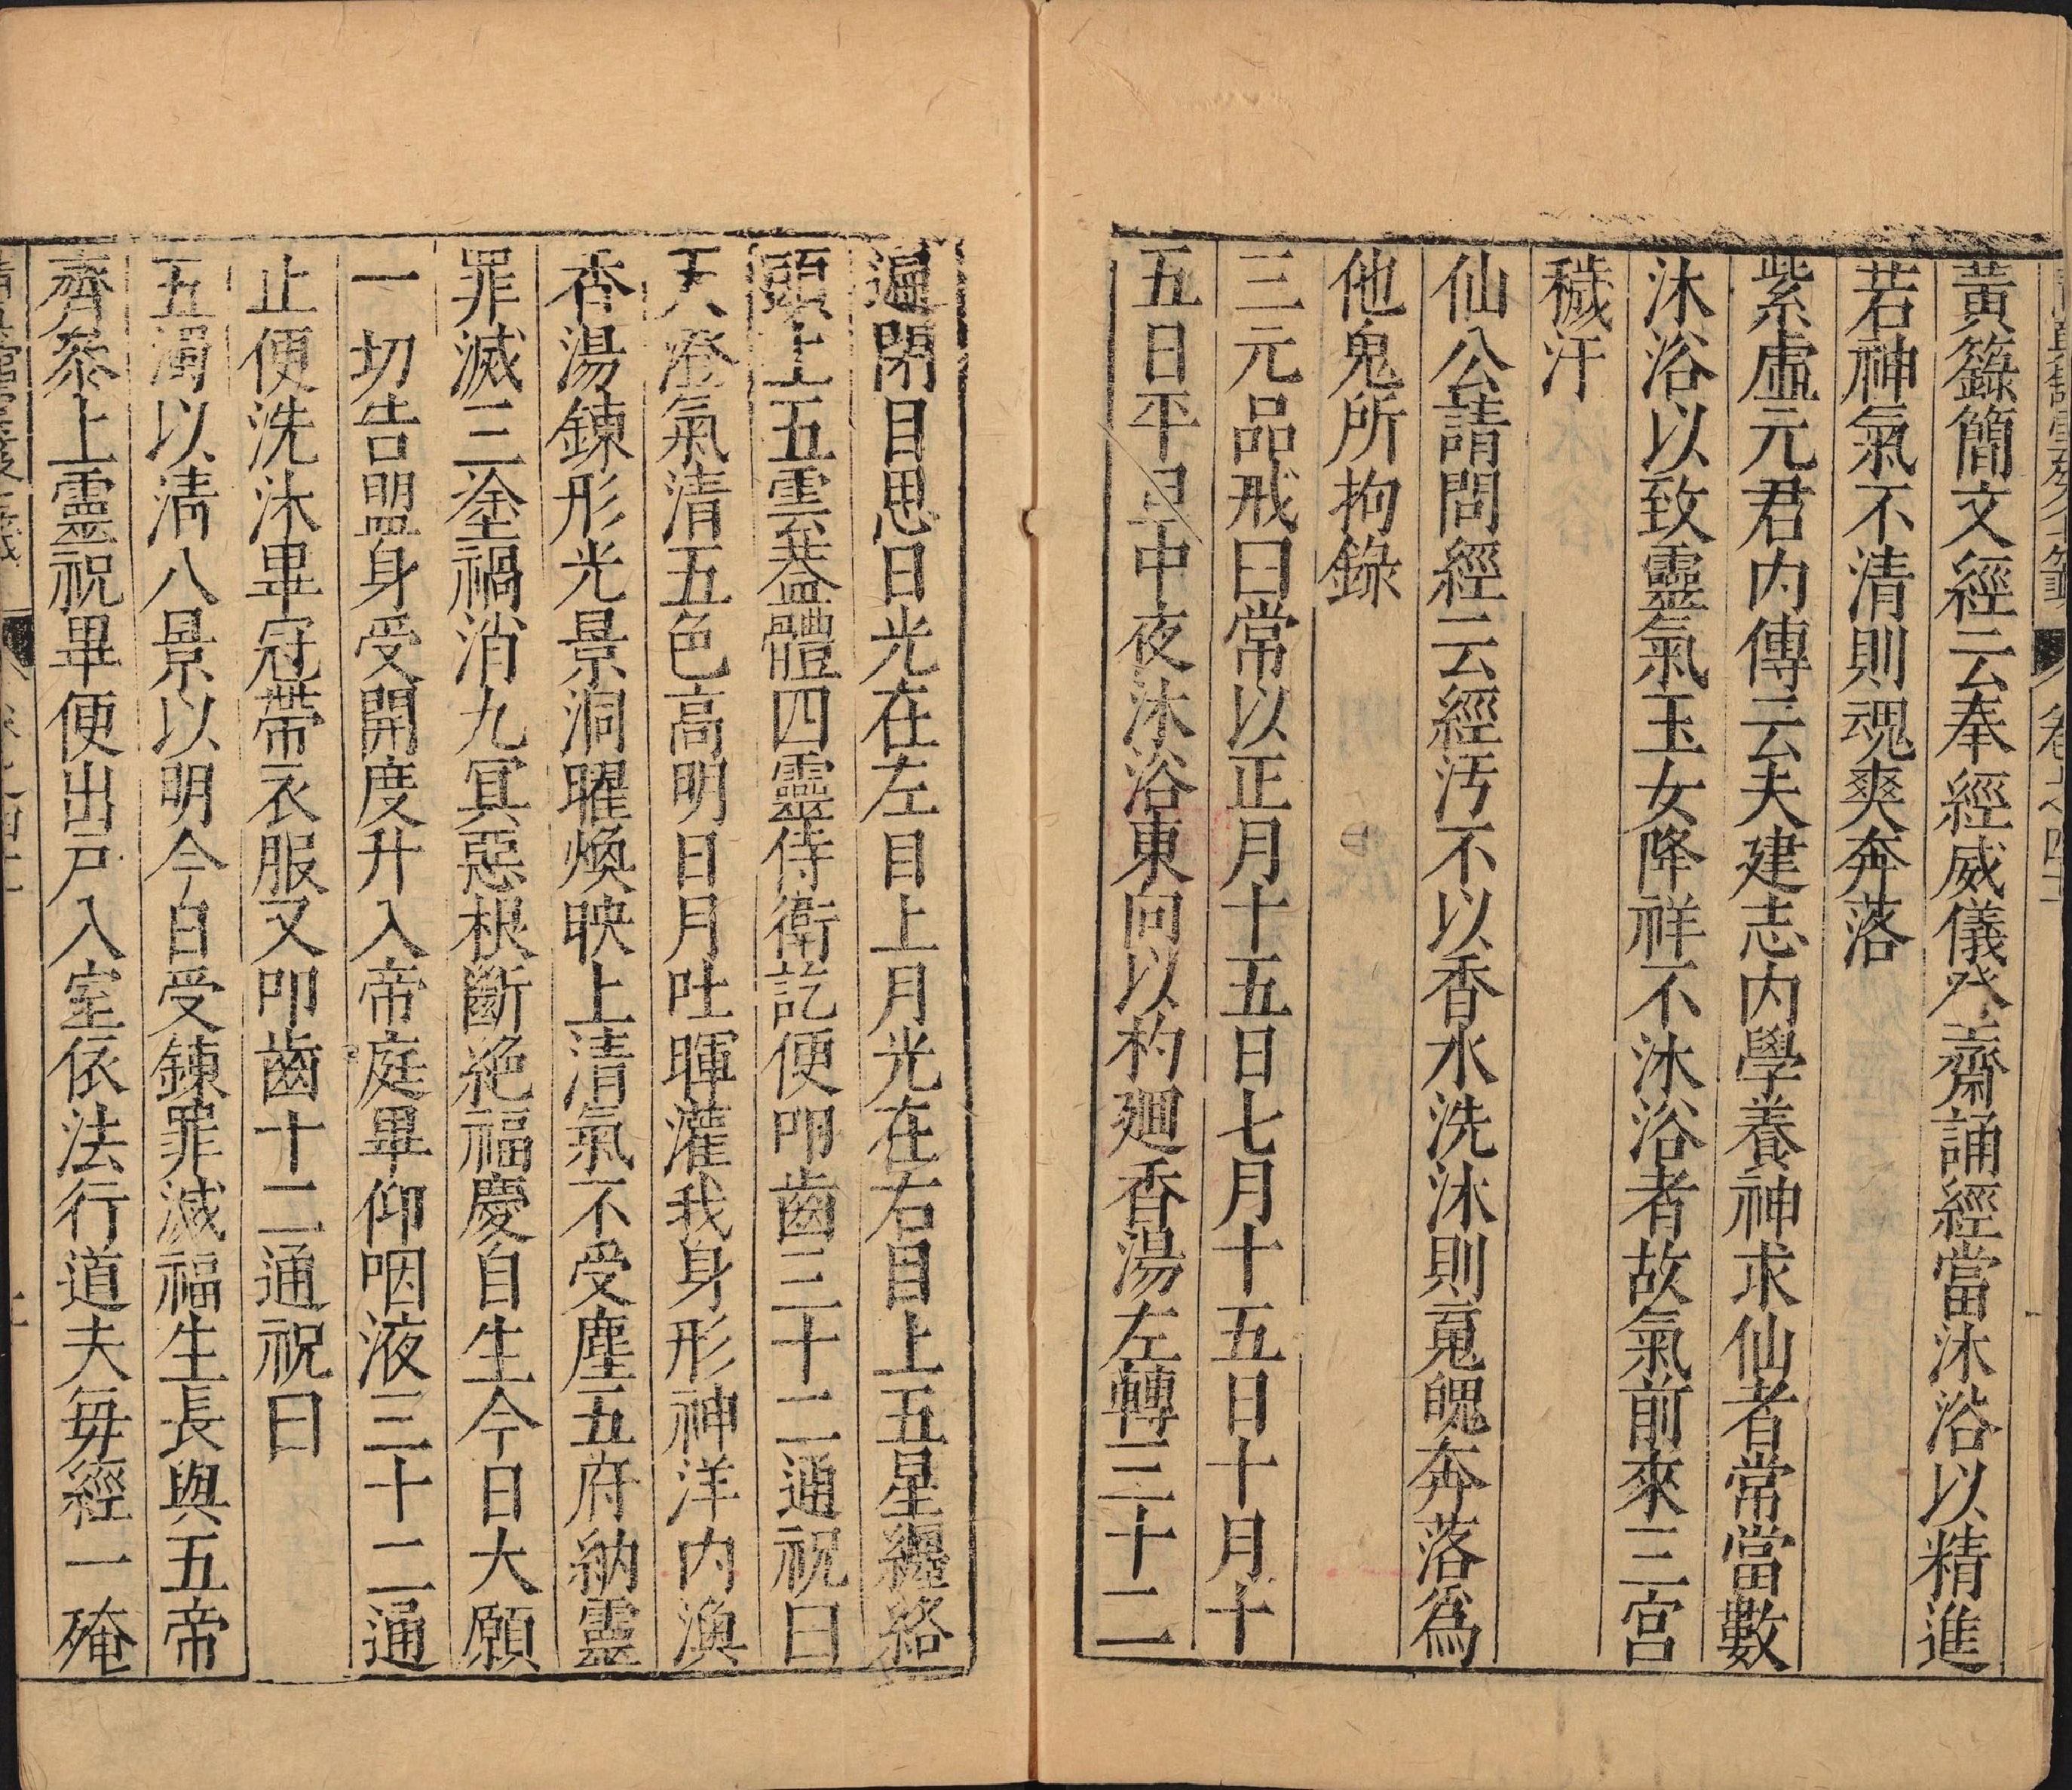 卷之四十一
黃籙簡文經云奉經威儀登齋誦經當沐浴以精進
若神氣不清則魂爽奔落
紫虛元君内傳云夫建志内學養神求仙者常當數
沐浴以致靈氣玉女降祥不沐浴者故氣前來三宮
穢汗
仙公請問經云經汚不以香水洗沐則䰟魄奔落爲
他鬼所拘錄
三元品戒曰常以正月十五日七月十五日十月十
五日平旦中夜沐浴東向以杓廻香湯左轉三十二
遍閉目思日光在左目上月光在右目上五星纒絡
頭上五雲葢體四靈侍衛訖便叩齒三十二通祝曰
天澄氣清五色高明日月吐暉灌我身形神洋内渙
香湯鍊形光景洞曜煥映上清氣不受塵五府納靈
罪滅三塗禍消九冥惡根斷絶福慶自生今日大願
一切告盟身受開度升入帝庭畢仰咽液三十二通
止便洗沐畢冠帶衣服又叩齒十二通祝曰
五濁以清八景以明今日受鍊罪滅福生長與五帝
齊叅上靈祝畢便出戸入室依法行道夫毎經一殗